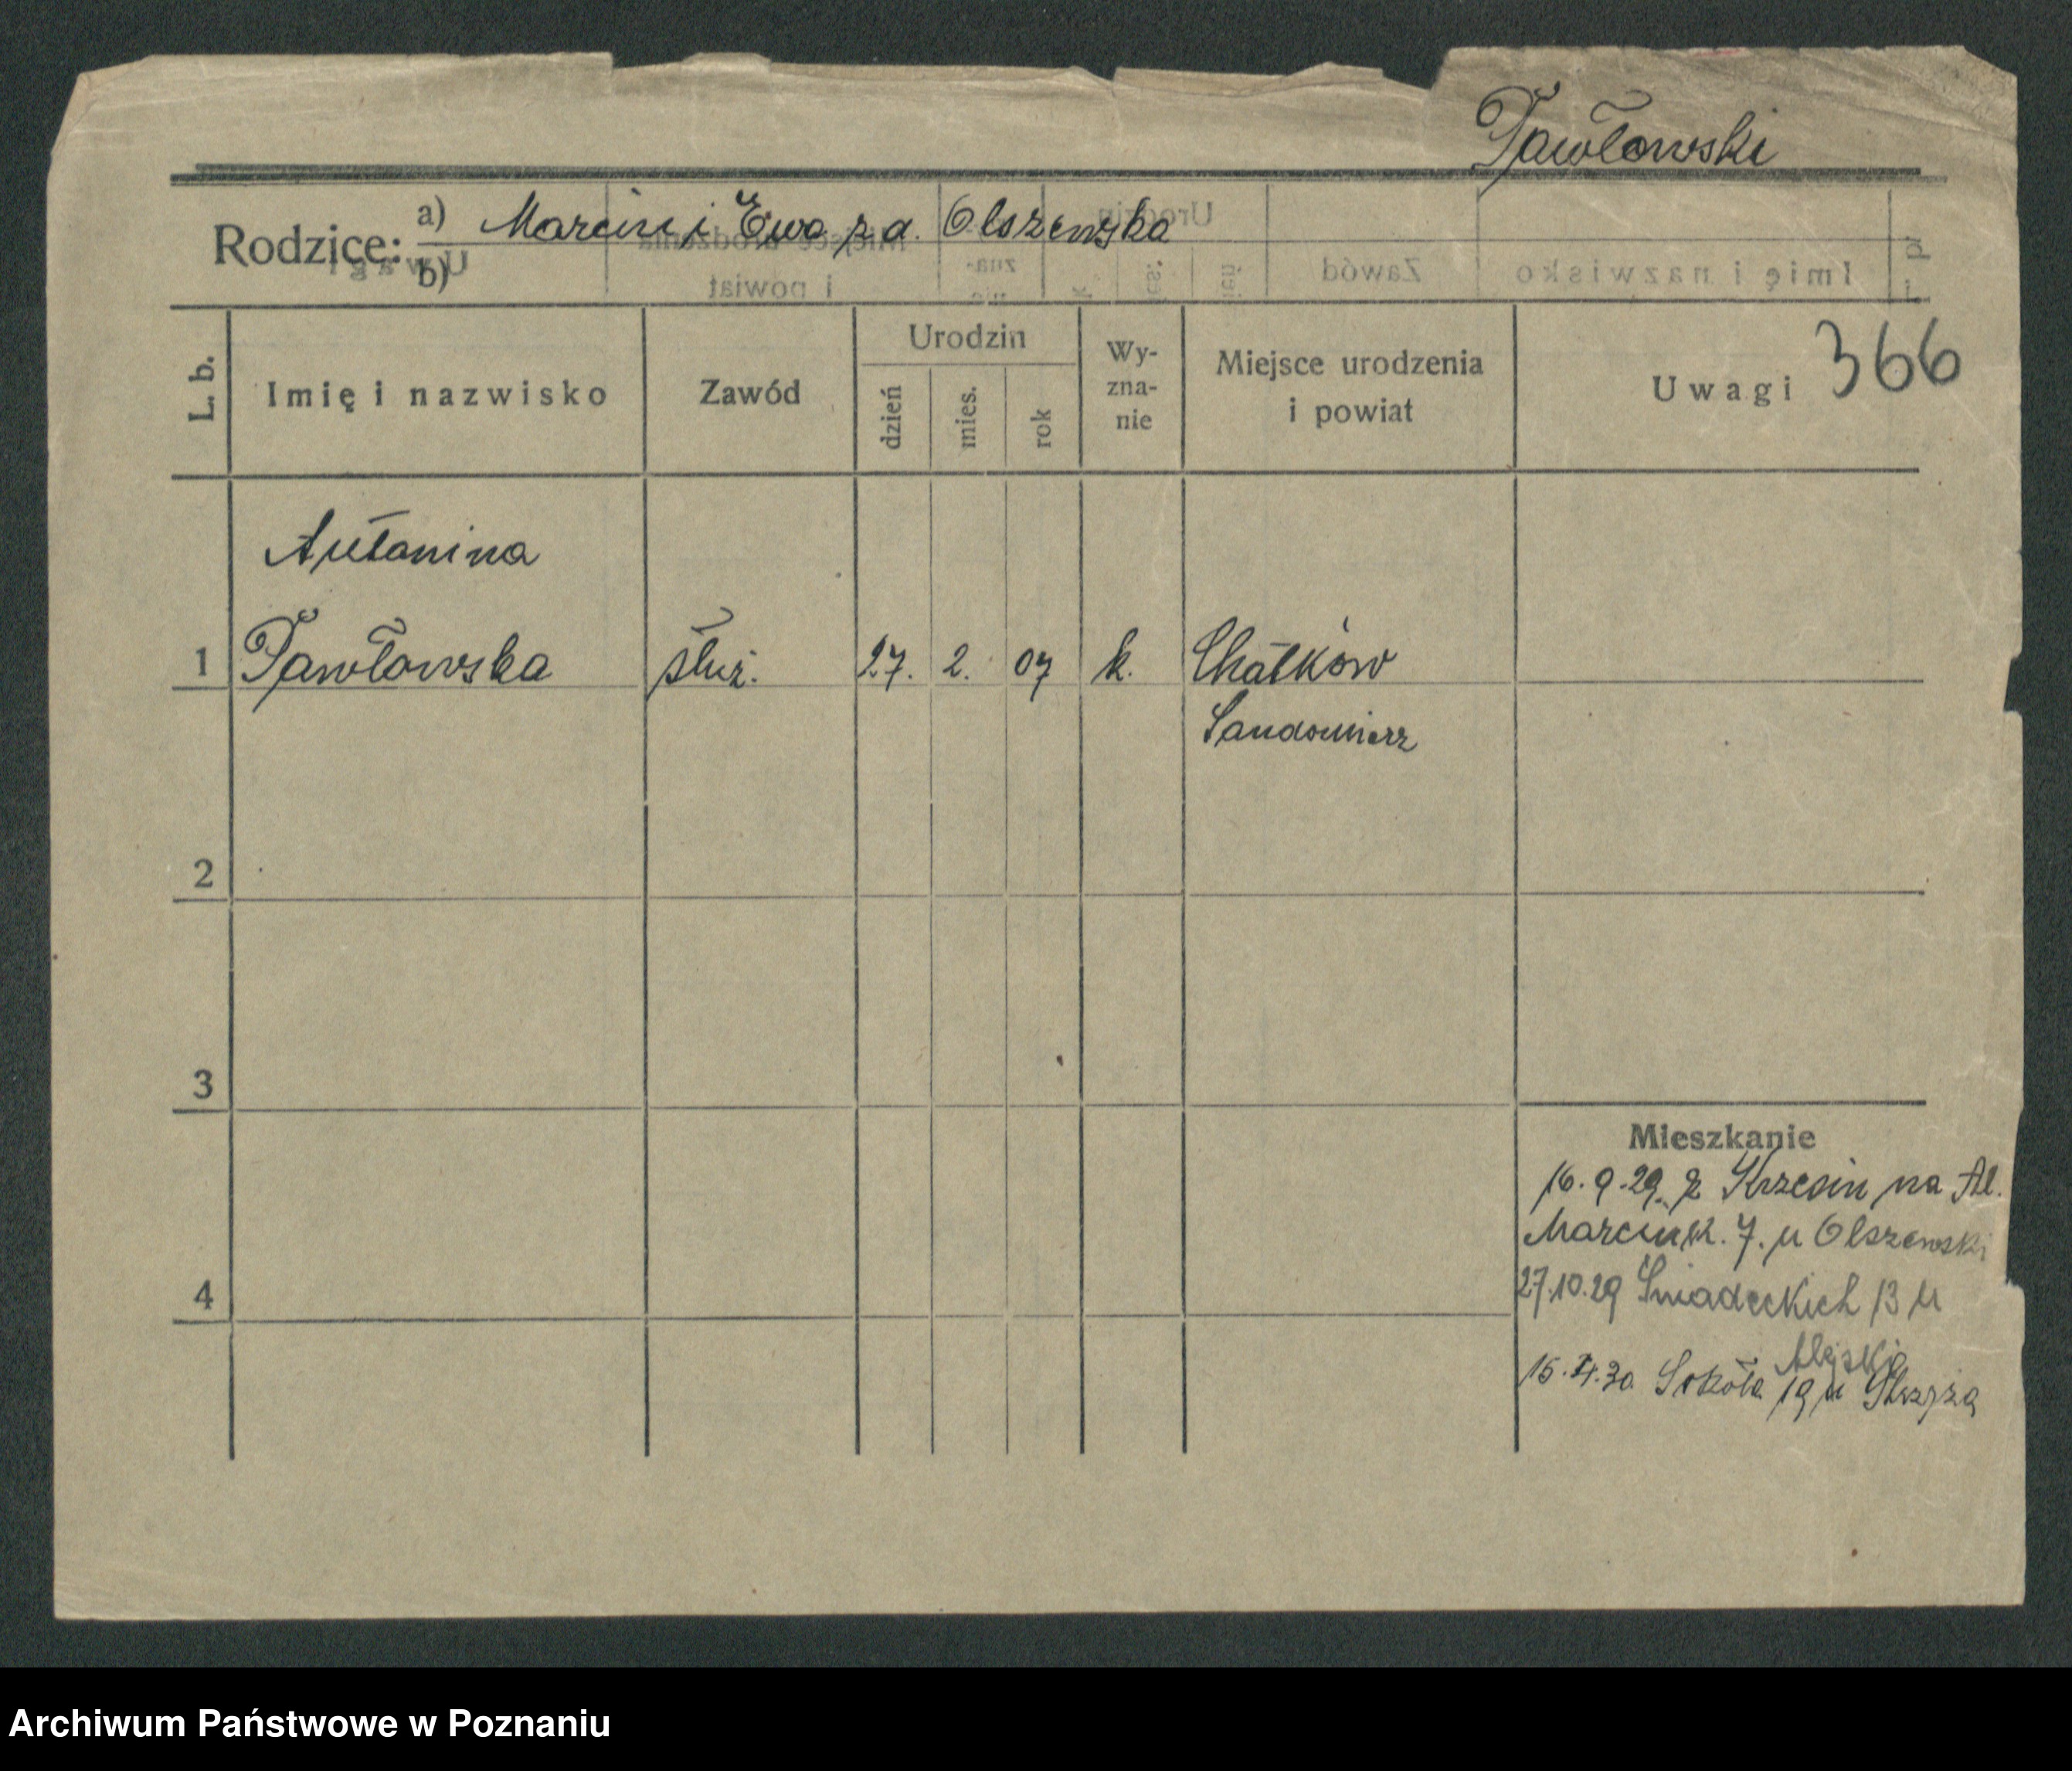 Pawłowski
Rodzice: a) Marcin i Ewa z d. Olszewska
b)
L. b.
Imię i nazwisko
Zawód
Urodzin
dzień
mies.
rok
Wy-
zna-
nie
Miejsce urodzenia
i powiat
Uwagi 366
Antonina
1 Pawłowska służ. 27. 2. 07 k. Chałków
Sandomierz
2
3
Mieszkanie
16.9.29. z Krzesin na Al.
Marcink. 7. u Olszewski
4
27.10.29 Śniadeckich 13 u
15.II.30 Sokoła 19 u
Archiwum Państwowe w Poznaniu